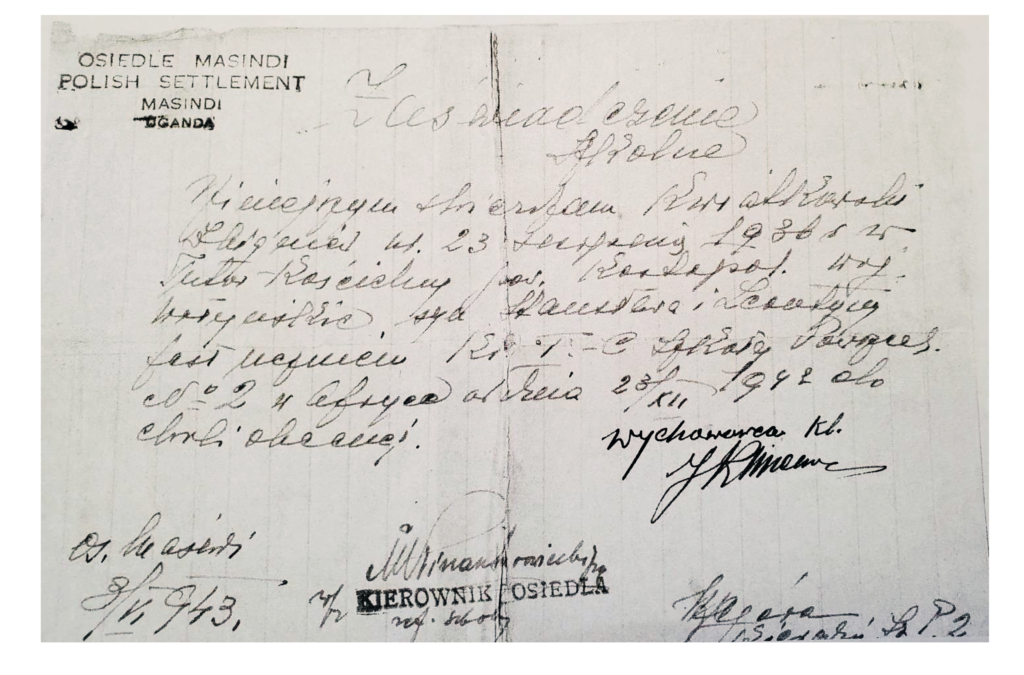 OSIEDLE MASINDI
POLISH SETTLEMENT
MASINDI
UGANDA
Zaświadczenie
Szkolne
Niniejszym stwierdzam Kwiatkowski
Zbigniew ur. 23 sierpnia 1936 r w
Kościelny pow. Kostopol. woj.
wołyńskie, syn Stanisława i Leontyny
jest uczniem Kl. I-C Szkoły Powszech.
No 2 w Afryce od dnia 23/XII 1942 do
chwili obecnej.
Wychowawca kl.
os. Masindi
3/VI 943.
w/z
KIEROWNIK OSIEDLA
ref. szkolny
Kierownik Sz. P. 2